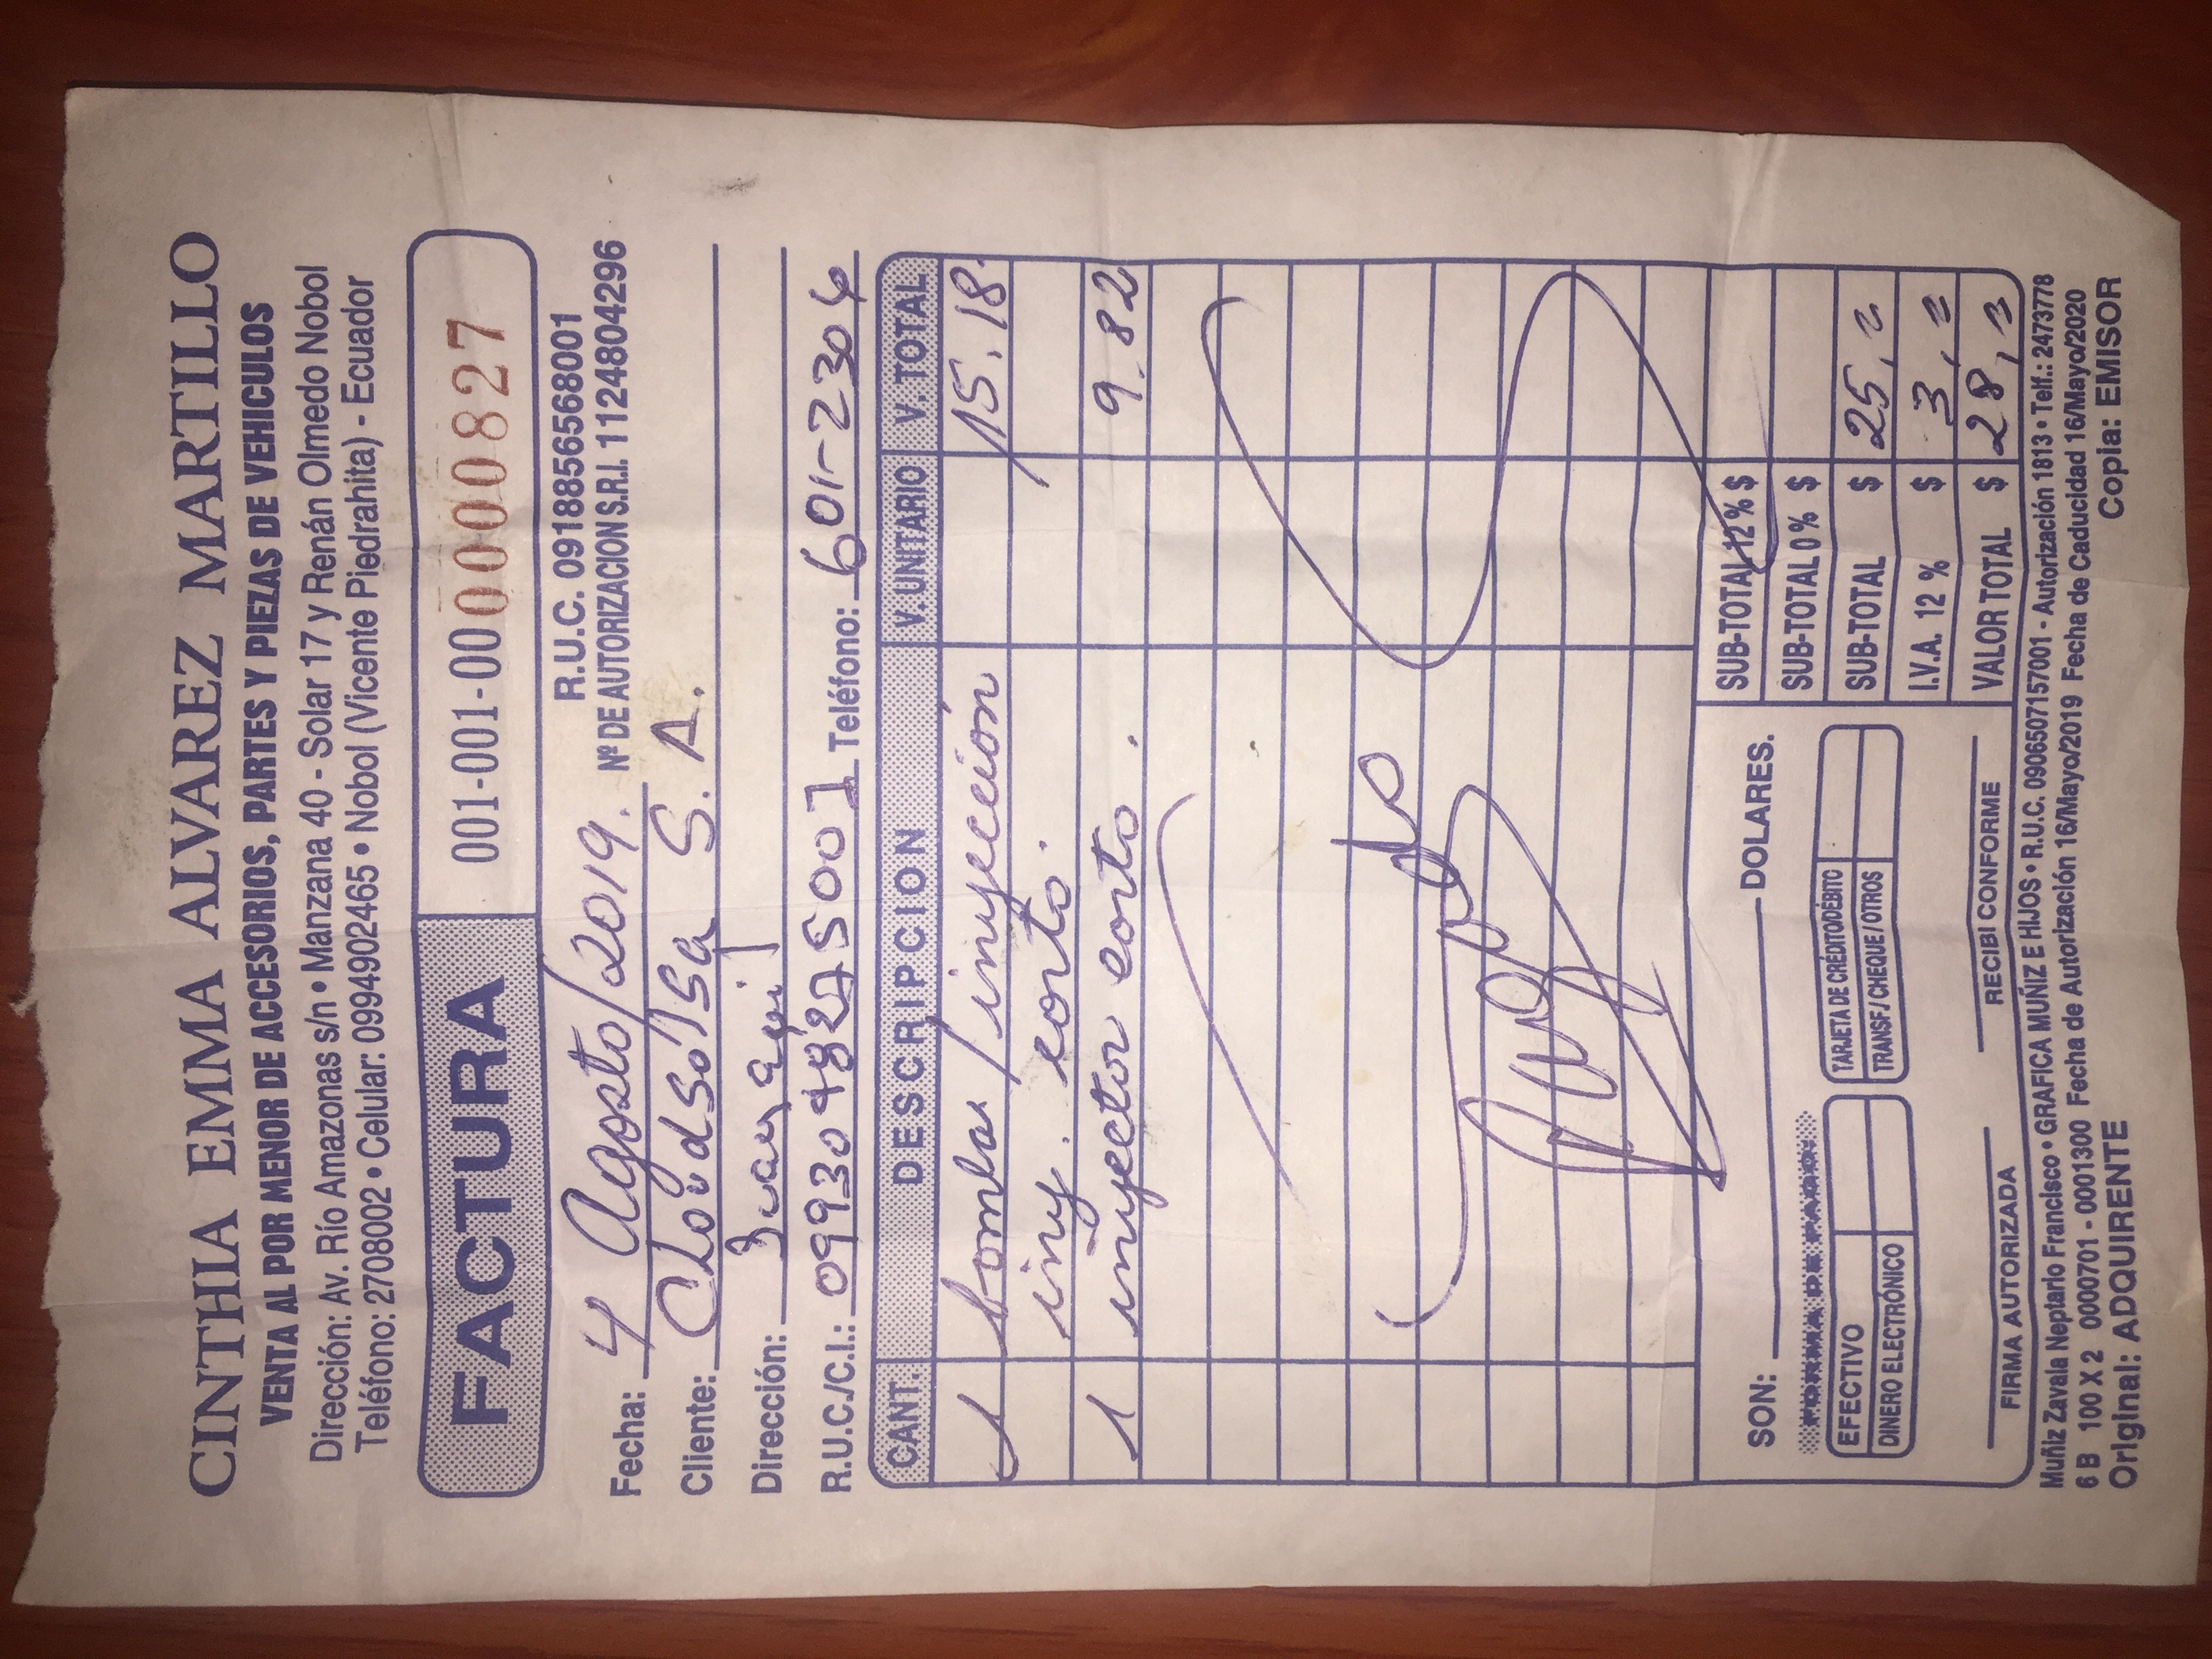 CINTHIA EMMA ALVAREZ MARTILLO
VENTA AL POR MENOR DE ACCESORIOS, PARTES Y PIEZAS DE VEHICULOS
Dirección: Av. Río Amazonas s/n • Manzana 40 - Solar 17 y Renán Olmedo Nobol
Teléfono: 2708002 • Celular: 0994902465 • Nobol (Vicente Piedrahita) - Ecuador
FACTURA 001-001-00 0000827
R.U.C. 0918856568001
Fecha: 4 Agosto/2019. Nº DE AUTORIZACION S.R.I. 1124804296
Cliente: Cloudsolsa S. A.
Dirección: Guayaquil
R.U.C./C.I.: 0993048275001 Teléfono: 601-2306
CANT. DESCRIPCION V. UNITARIO V. TOTAL
1 bomba / inyección 15.18
iny. corto.
1 inyector corto. 9.82
Pagado
SON: DOLARES.
SUB-TOTAL 12% $
SUB-TOTAL 0% $
FORMA DE PAGO:
EFECTIVO TARJETA DE CRÉDITO/DÉBITO
SUB-TOTAL $ 25,
DINERO ELECTRÓNICO TRANSF./ CHEQUE / OTROS
I.V.A. 12 % $ 3,
VALOR TOTAL $ 28,
FIRMA AUTORIZADA RECIBI CONFORME
Muñiz Zavala Neptario Francisco • GRAFICA MUÑIZ E HIJOS • R.U.C. 0906507157001 - Autorización 1813 • Telf.: 2473778
6 B 100 X 2 0000701 - 0001300 Fecha de Autorización 16/Mayo/2019 Fecha de Caducidad 16/Mayo/2020
Original: ADQUIRENTE Copia: EMISOR